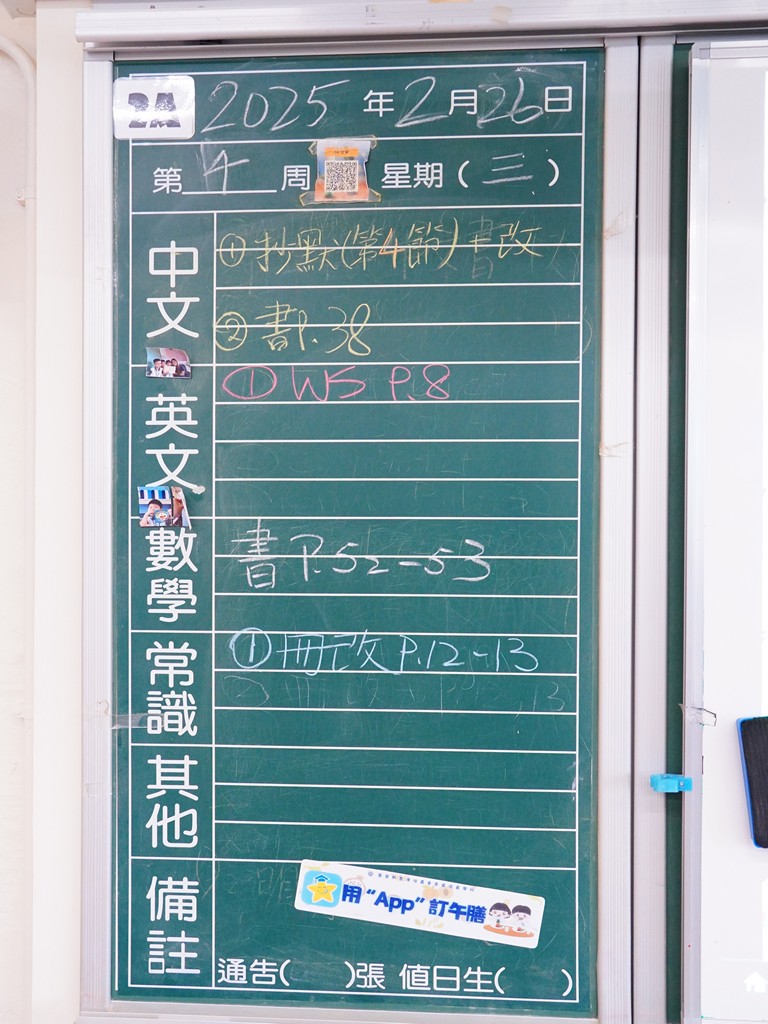 2A 2025年2月26日
第4周 星期(三)
中文
①抄默(第4節)書改
②書P.38
英文
① WS P.8
數學
書 P.52-53
常識
①冊改 P.12-13
其他
備註
用“App”訂午膳
通告( )張 值日生( )